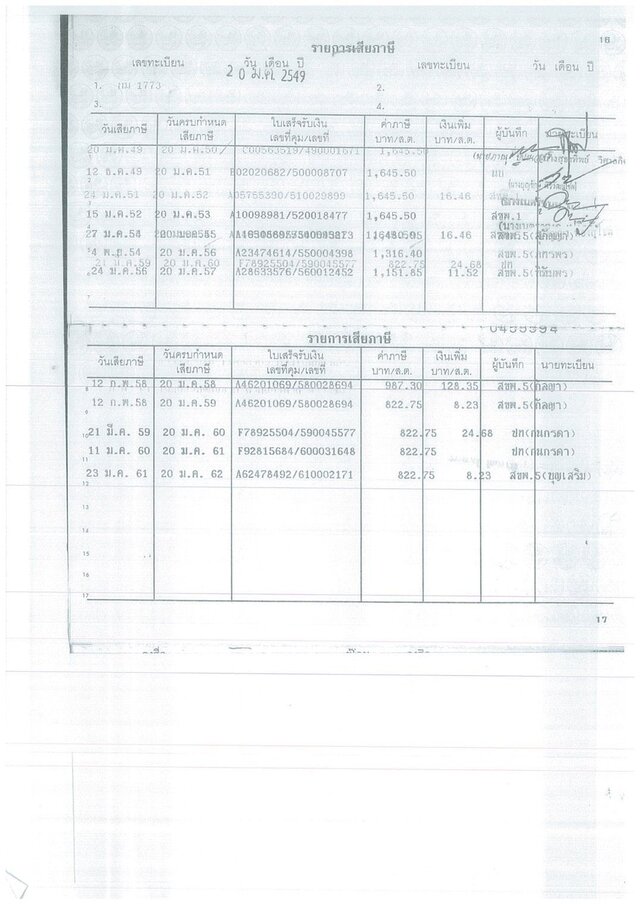 16
รายการเสียภาษี
เลขทะเบียน วัน เดือน ปี เลขทะเบียน วัน เดือน ปี
20 ม.ค. 2549
1. 1773 2.
3. 4.
วันเสียภาษี วันครบกำหนดเสียภาษี ใบเสร็จรับเงิน เลขที่คุม/เลขที่ ค่าภาษี บาท/ส.ต. เงินเพิ่ม บาท/ส.ต. ผู้บันทึก นายทะเบียน
20 ม.ค.49 20 ม.ค.50 C00563519/490001671 1,645.50
12 ธ.ค.49 20 ม.ค.51 E02020682/500008707 1,645.50
24 ม.ค.51 20 ม.ค.52 A05765390/510029899 1,645.50 16.46
15 ม.ค.52 20 ม.ค.53 A10098981/520018477 1,645.50 สขพ.1
27 ม.ค.54 16.46 สขพ.5
4 พ.ย.54 20 ม.ค.56 A23474614/550004398 1,316.40 สขพ.5
20 ม.ค.60 F78925504/590045577 822.75 24.68 ชท
24 ม.ค.56 20 ม.ค.57 A28633576/560012452 1,151.85 11.52 สขพ.5
7
0455994
รายการเสียภาษี
วันเสียภาษี วันครบกำหนดเสียภาษี ใบเสร็จรับเงิน เลขที่คุม/เลขที่ ค่าภาษี บาท/ส.ต. เงินเพิ่ม บาท/ส.ต. ผู้บันทึก นายทะเบียน
12 ก.พ.58 20 ม.ค.58 A46201069/580028694 987.30 128.35 สขพ.5(กัลญา)
12 ก.พ.58 20 ม.ค.59 A46201069/580028694 822.75 8.23 สขพ.5(กัลญา)
21 มี.ค. 59 20 ม.ค. 60 F78925504/590045577 822.75 24.68 ชท(กนกรดา)
11 ม.ค. 60 20 ม.ค. 61 F92815684/600031648 822.75 ชท(กนกรดา)
23 ม.ค. 61 20 ม.ค. 62 A62478492/610002171 822.75 8.23 สขพ.5(บุญเสริม)
12
13
14
15
16
17
17